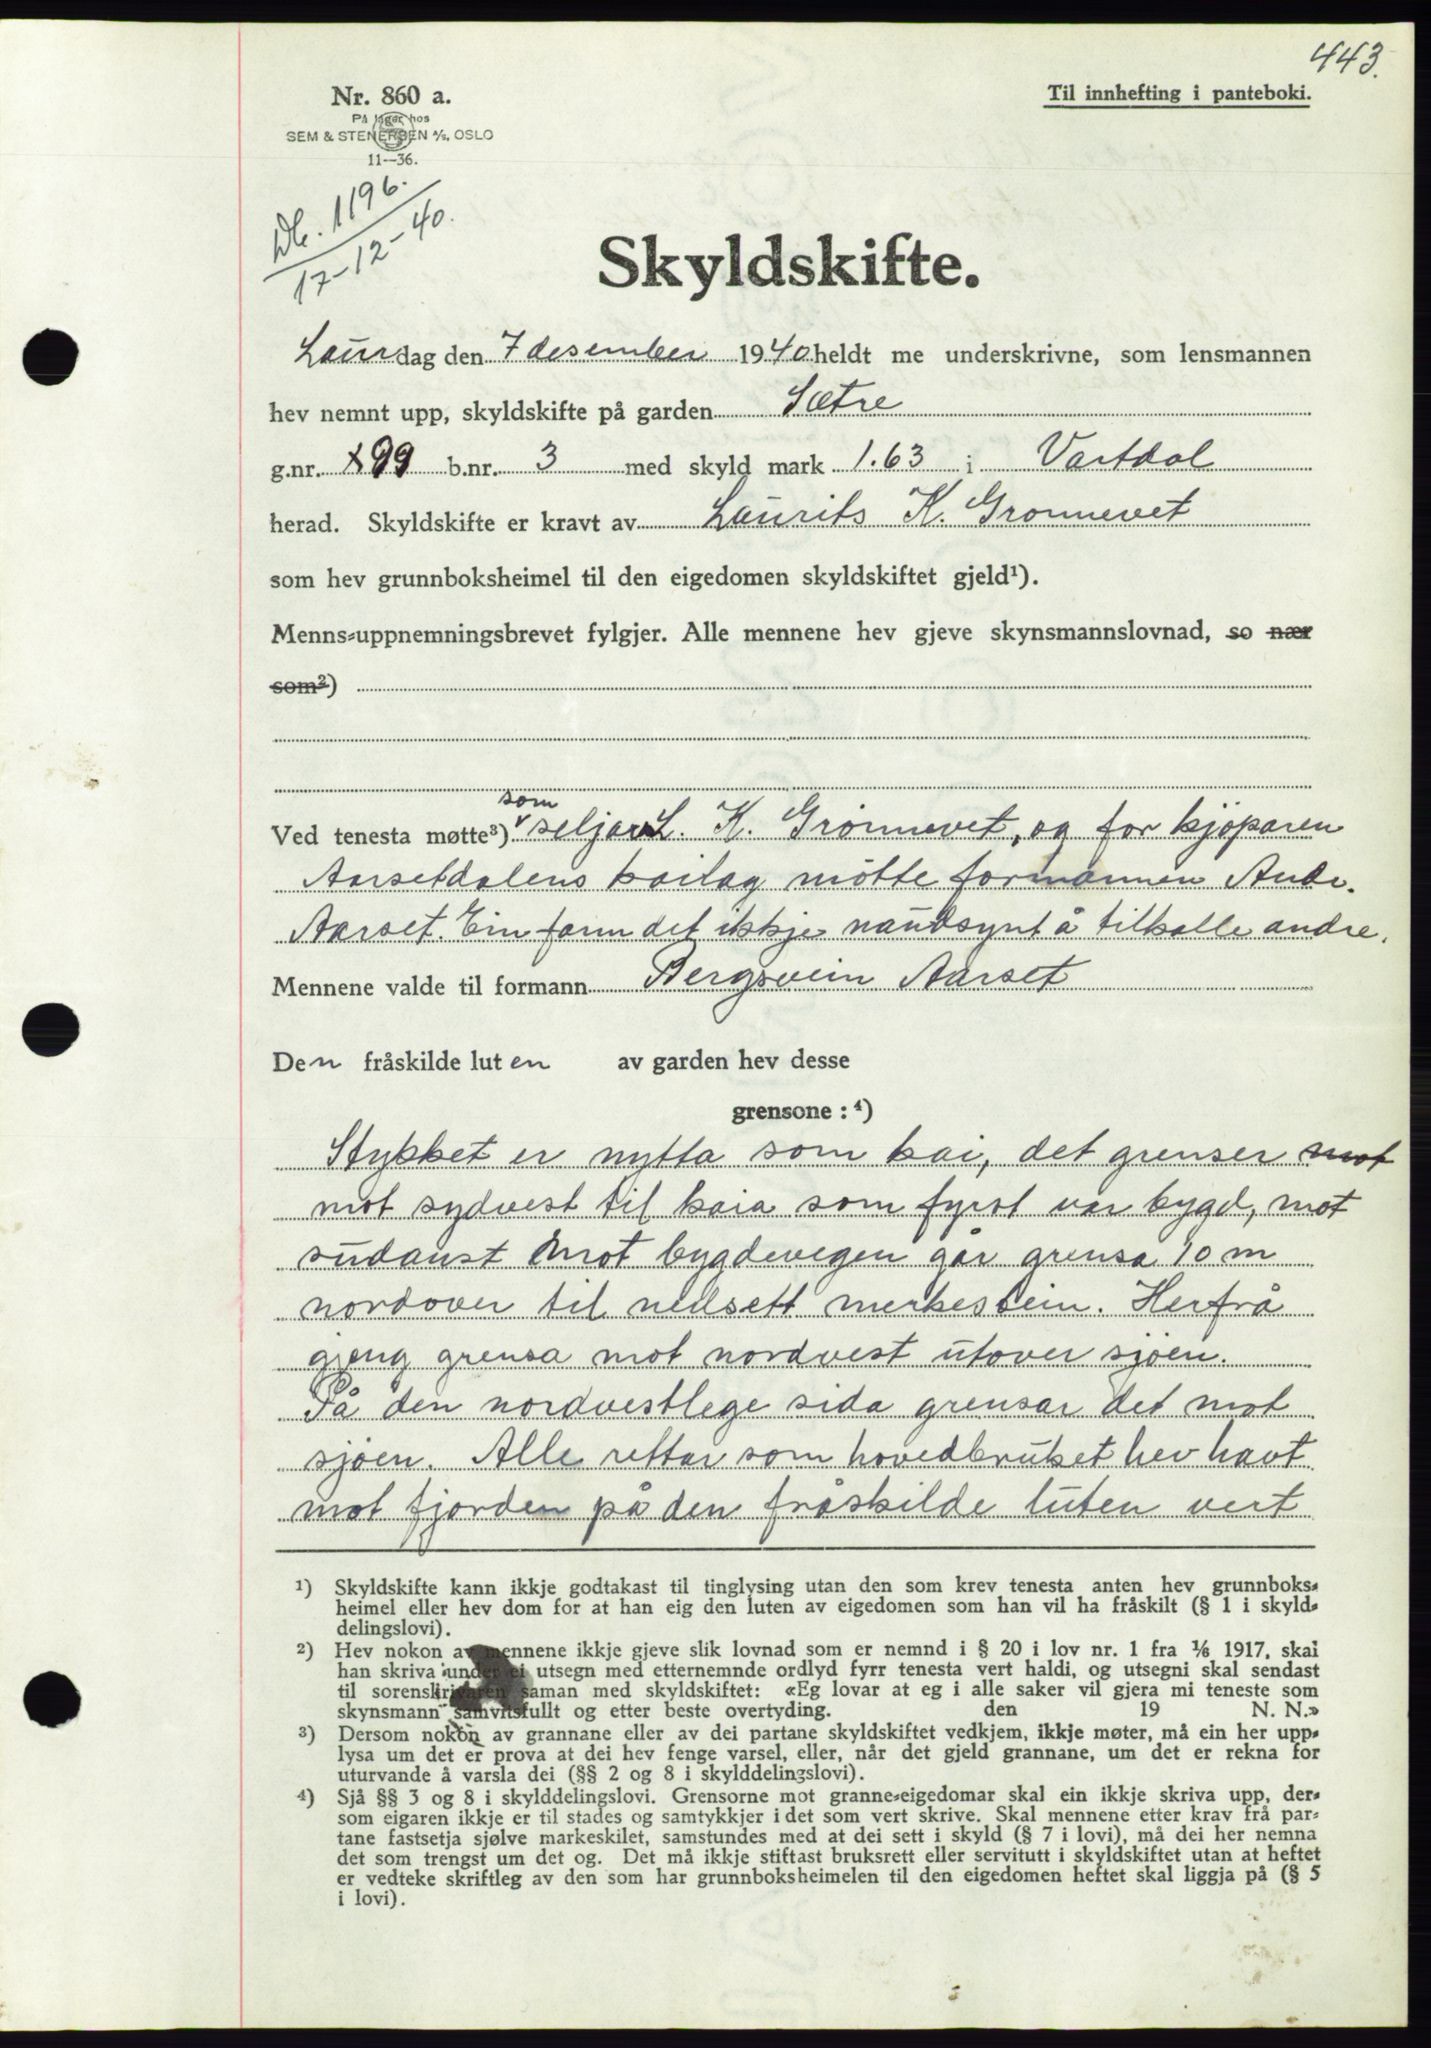 443.
Nr. 860 a.
Til innhefting i panteboki.
På lager hos
SEM & STENERSEN A/S, OSLO
11--36.
Db. 1196.
17-12-40.
Skyldskifte.
Laurdag den 7 desember 1940 heldt me underskrivne, som lensmannen
hev nemnt upp, skyldskifte på garden Sætre
g.nr. 99 b.nr. 3 med skyld mark 1.63 i Vartdal
herad. Skyldskifte er kravt av Laurits K. Grønnevet
som hev grunnboksheimel til den eigedomen skyldskiftet gjeld¹).
Menns-uppnemningsbrevet fylgjer. Alle mennene hev gjeve skynsmannslovnad, so nær
som²)
som
Ved tenesta møtte³) seljar L. K. Grönnevet, og for kjöparen
Aarsetdalens kailag mötte formannen Andr.
Aarset. Ein fann det ikkje naudsynt å tilkalle andre.
Mennene valde til formann Bergsvein Aarset
Den fråskilde luten av garden hev desse
grensone : ⁴)
Stykket er nytta som kai, det grenser mot
mot sydvest til kaia som fyrst var bygd, mot
sudaust mot bygdevegen går grensa 10 m
nordover til nedsett merkestein. Herfrå
gjeng grensa mot nordvest utover sjøen.
På den nordvestlege sida grensar det mot
sjøen. Alle rettar som hovedbruket hev havt
mot fjorden på den fråskilde luten vert
¹) Skyldskifte kann ikkje godtakast til tinglysing utan den som krev tenesta anten hev grunnboks-
heimel eller hev dom for at han eig den luten av eigedomen som han vil ha fråskilt (§ 1 i skyld-
delingslovi).
²) Hev nokon av mennene ikkje gjeve slik lovnad som er nemnd i § 20 i lov nr. 1 fra 1/6 1917, skal
han skriva under ei utsegn med etternemnde ordlyd fyrr tenesta vert haldi, og utsegni skal sendast
til sorenskrivaren saman med skyldskiftet: «Eg lovar at eg i alle saker vil gjera mi teneste som
skynsmann samvitsfullt og etter beste overtyding. den 19 N. N.»
³) Dersom nokon av grannane eller av dei partane skyldskiftet vedkjem, ikkje møter, må ein her upp-
lysa um det er prova at dei hev fenge varsel, eller, når det gjeld grannane, um det er rekna for
uturvande å varsla dei (§§ 2 og 8 i skylddelingslovi).
⁴) Sjå §§ 3 og 8 i skylddelingslovi. Grensorne mot granne-eigedomar skal ein ikkje skriva upp, der-
som eigaren ikkje er til stades og samtykkjer i det som vert skrive. Skal mennene etter krav frå par-
tane fastsetja sjølve markeskilet, samstundes med at dei sett i skyld (§ 7 i lovi), må dei her nemna
det som trengst um det og. Det må ikkje stiftast bruksrett eller servitutt i skyldskiftet utan at heftet
er vedteke skriftleg av den som har grunnboksheimelen til den eigedomen heftet skal liggja på (§ 5
i lovi).